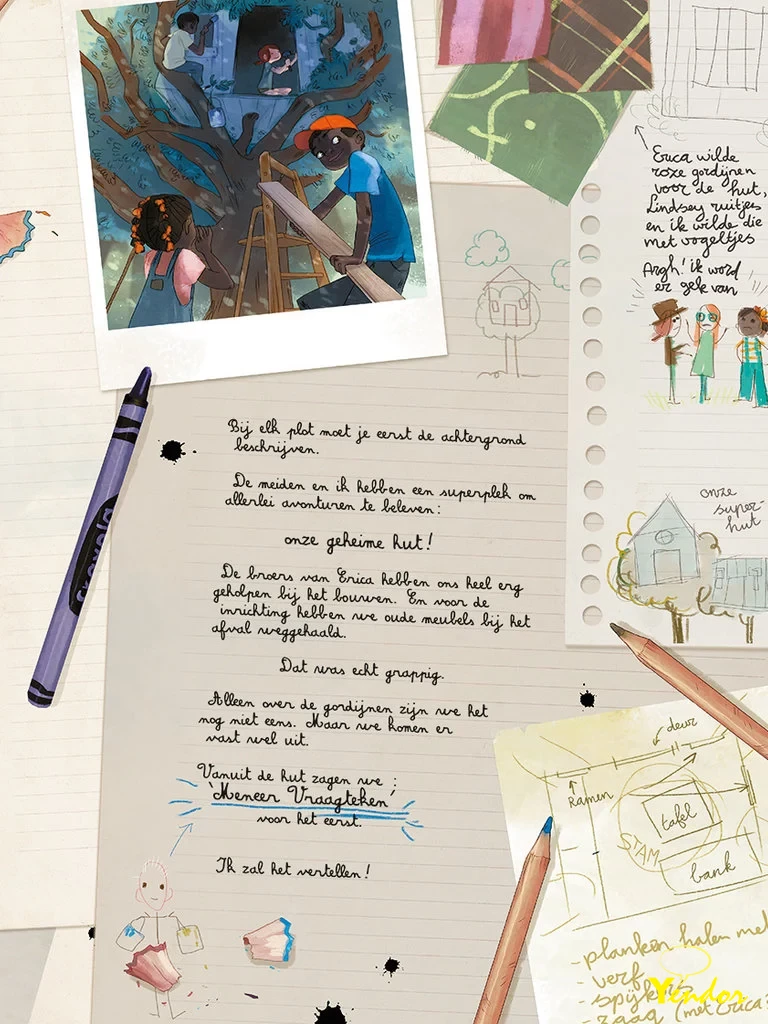 Erica wilde
roze gordijnen
voor de hut,
Lindsey ruitjes
en ik wilde die
met vogeltjes
Argh! ik word
er gek van
Bij elk plot moet je eerst de achtergrond
beschrijven.
De meiden en ik hebben een superplek om
allerlei avonturen te beleven:
onze geheime hut!
De broers van Erica hebben ons heel erg
geholpen bij het bouwen. En voor de
inrichting hebben we oude meubels bij het
afval weggehaald.
Dat was echt grappig.
Alleen over de gordijnen zijn we het
nog niet eens. Maar we komen er
vast wel uit.
Vanuit de hut zagen we
'Meneer Vraagteken'
voor het eerst.
Ik zal het vertellen!
onze
super-
hut
crayola
deur
Ramen
tafel
STAM
bank
- planken halen met
- verf
- spijkers
- zaag (met Erica?
Yendor